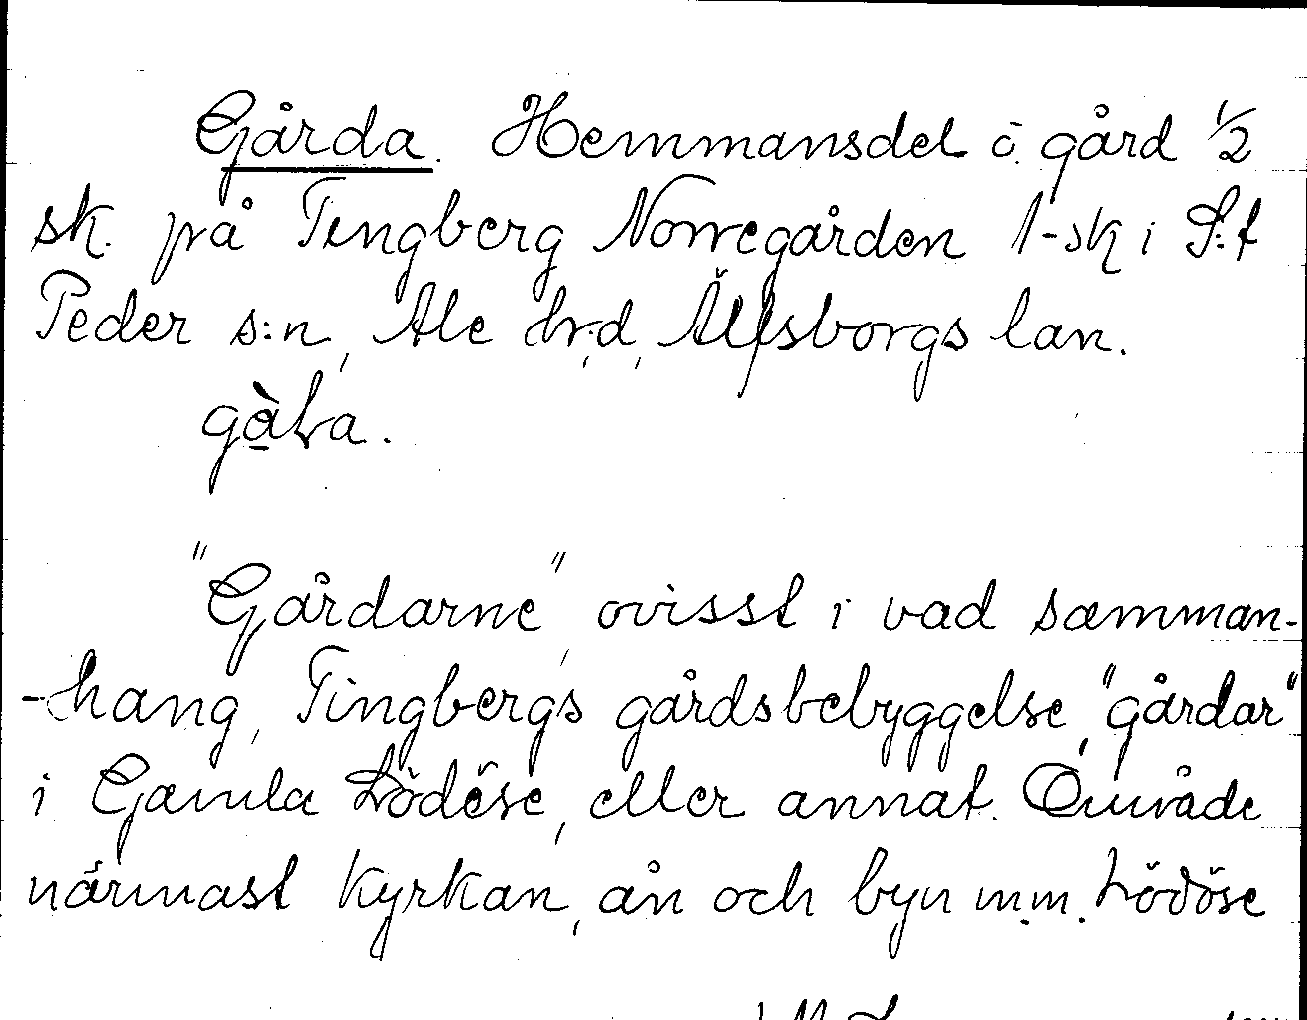 Gårda. Hemmansdel o. gård 1/2
sk. på Tingberg Norregården 1-sk i S:t
Peder s:n, Ale hrd, Älfsborgs län.
"Gårdarne", ovisst i vad samman-
-hang, Tingbergs gårdsbebyggelse, "gårdar"
i Gamla Lödöse, eller annat. Område
närmast kyrkan, ån och byn m.m. Lödöse